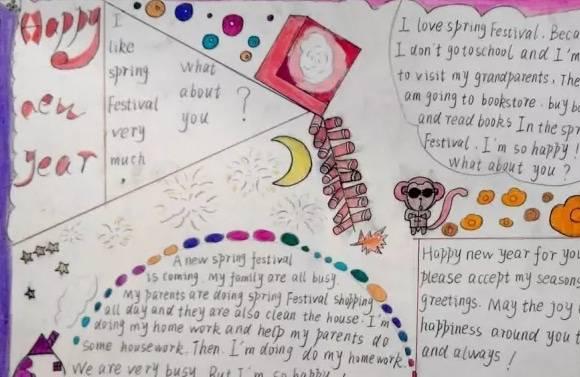 Happy
new
year
I
like
spring
Festival
very
much
.
what
about
you ?
I love spring Festival. Beca
I don't go to school and I'm
to visit my grandparents, The
am going to bookstore. buy b
and read books In the spr
Festival. I'm so happy!
What about you ?
A new spring festival
is coming. My family are all busy.
My parents are doing spring Festival shopping
all day and they are also clean the house. I'm
doing my home work and help my parents do
some housework. Then. I'm doing do my homework.
We are very busy. But I'm so happy!
Happy new year for you
please accept my seasons
greetings. May the joy
happiness around you t
and always!